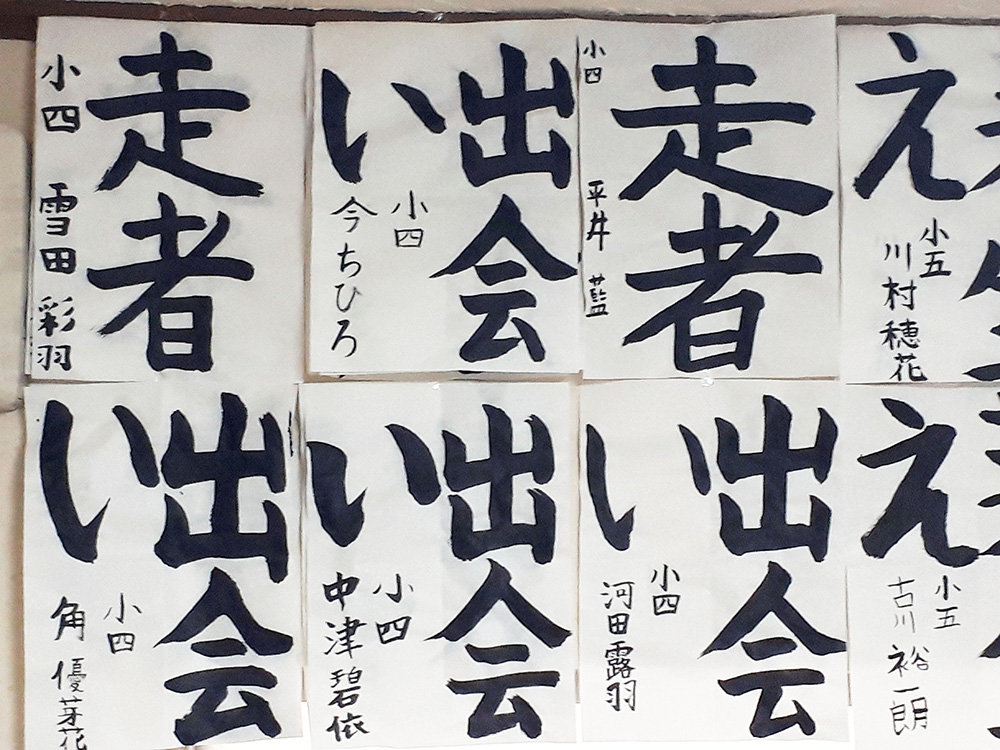 走者
小四 雪田 彩羽
出会
い
小四
今ちひろ
走者
小四 平井 藍
え
小五
川村穂花
出会
い
小四
角 優芽花
出会
い
小四
中津碧依
出会
い
小四
河田露羽
え
小五
古川裕一朗